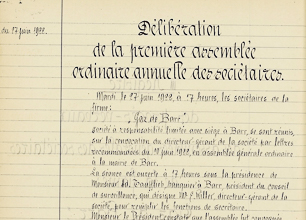 du 17 juin 1922.
Délibération
de la première assemblée
ordinaire annuelle des sociétaires.
Mardi le 27 juin 1922, à 17 heures, les sociétaires de la
firme:
"Gaz de Barr,"
société à responsabilité limitée avec siège à Barr, se sont réunis,
sur la convocation du directeur-gérant de la société par lettres
recommandées du juin 1922, en assemblée générale ordinaire
à la mairie de Barr.
La séance est ouverte à 17 heures sous la présidence de
Monsieur banquier à Barr, président du conseil
de surveillance, qui désigne Mr. directeur-gérant de la
société, pour remplir les fonctions de secrétaire.
Monsieur le Président constate que l'assemblée